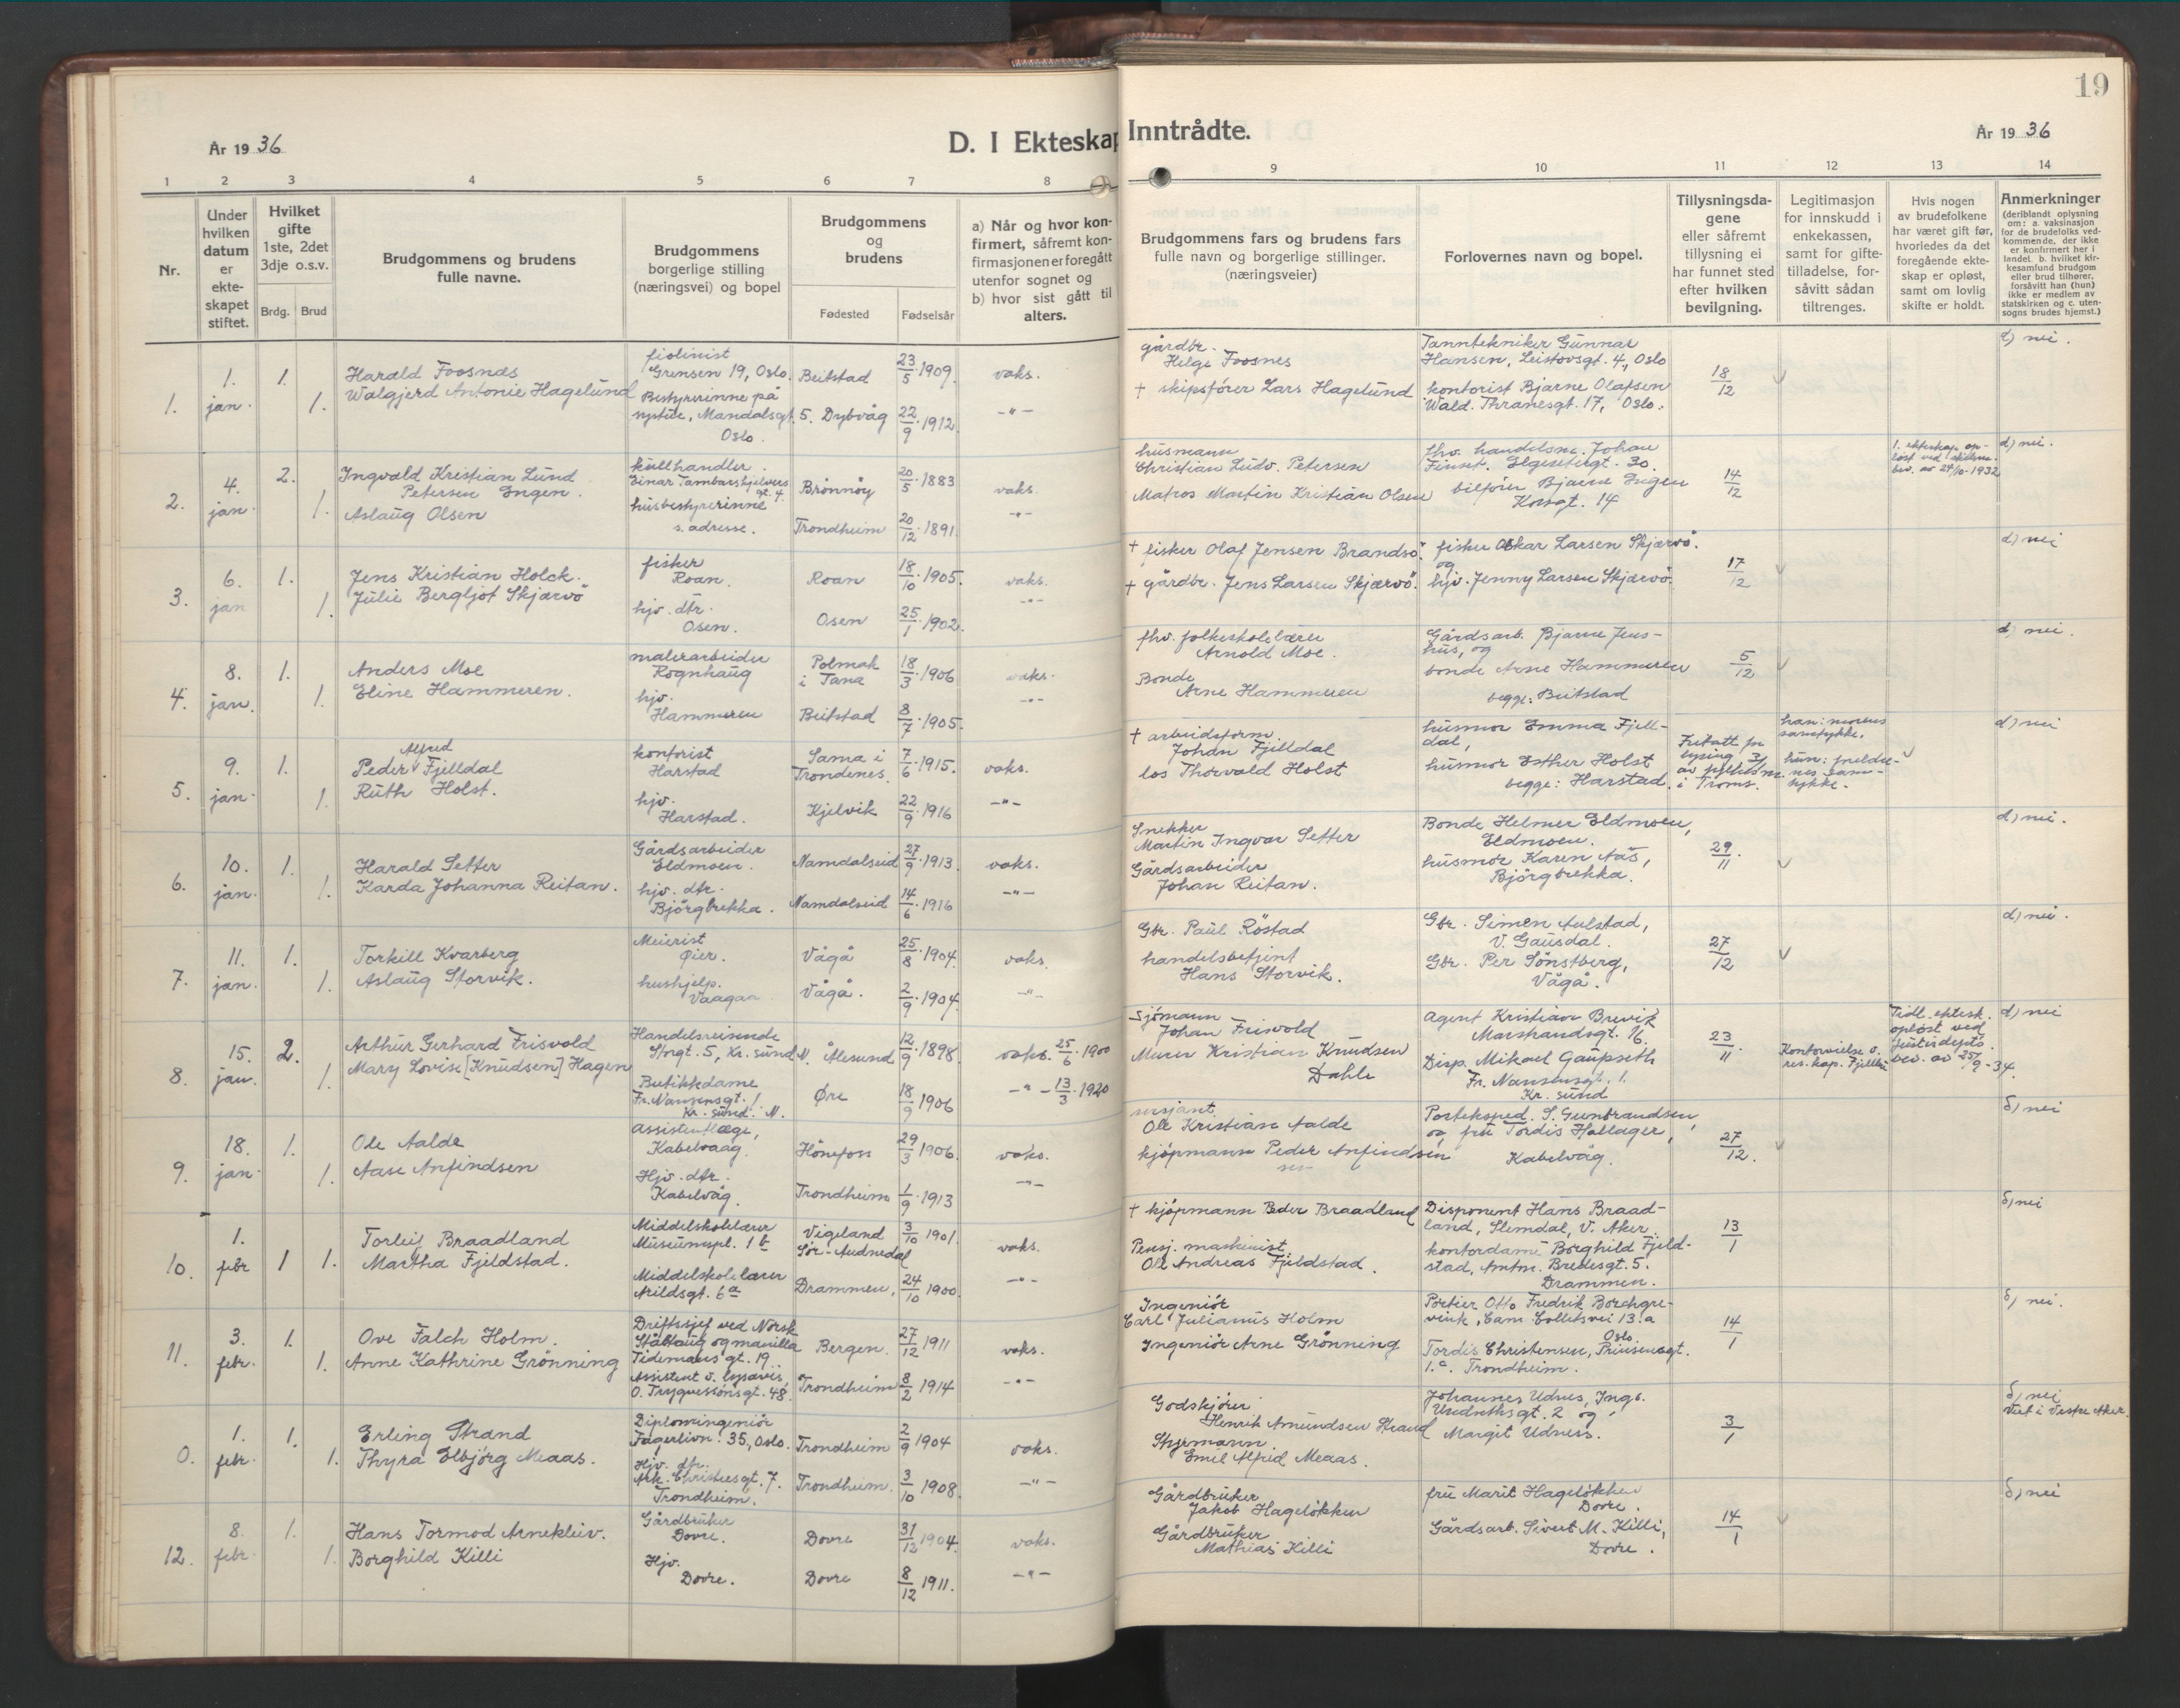 19
År 1936
D. I Ekteskap
Inntrådte.
År 1936
1 2 3 4 5 6 7 8
9 10 11 12 13 14
Nr.
Under hvilken datum er ekteskapet stiftet.
Hvilket gifte
1ste, 2det 3dje o.s.v.
Brdg. Brud
Brudgommens og brudens
fulle navne.
Brudgommens
borgerlige stilling
(næringsvei) og bopel
Brudgommens
og
brudens
Fødested Fødselsår
a) Når og hvor kon-
firmert, såfremt kon-
firmasjonen er foregått
utenfor sognet og
b) hvor sist gått til
alters.
Brudgommens fars og brudens fars
fulle navn og borgerlige stillinger.
(næringsveier)
Forlovernes navn og bopel.
Tillysningsda-
gene
eller såfremt
tillysning ei
har funnet sted
efter hvilken
bevilgning.
Legitimasjon
for innskudd i
enkekassen,
samt for gifte-
tilladelse, for-
såvitt sådan
tiltrenges.
Hvis nogen
av brudefolkene
har været gift før,
hvorledes da det
foregående ekte-
skap er opløst,
samt om lovlig
skifte er holdt.
Anmerkninger
(deriblandt oplysning
om: a. vaksinasjon
for de brudefolks ved-
kommende, der ikke
er konfirmert her i
landet. b. hvilket kir-
kesamfund brudgom
eller brud tilhører,
forsåvitt han (hun)
ikke er medlem av
statskirken og c. uten-
sogns brudes hjemst.)
1. 1. jan. 1. 1.
Harald Foosnæs
Walgjerd Antonie Hagelund
fiolinist
Grensen 19, Oslo.
Bestyrerinne på
systue, Mandalsgt. 5.
Oslo.
Beitstad 23/5 1909. vaks.
Dybvåg 22/9 1912. -"-
gårdbr.
Helge Foosnes
+ skipsfører Lars Hagelund
Tanntekniker Gunnar
Hansen, Leistovsgt. 4, Oslo
kontorist Bjarne Olafsen
Wald. Thranesgt. 17, Oslo.
18/12
d) nei.
2. 4. jan. 2. 1.
Ingvald Kristian Lund
Petersen Engen.
Aslaug Olsen
kullhandler.
Einar Tambarskjelvers
gt. 4.
husbestyrerinne
s. adresse.
Brønnøy 20/5 1883 vaks.
Trondheim 20/12 1891. -"-
husmann
Christian Ludv. Petersen
Matros Martin Kristian Olsen
fhv. handelsm. Johan
Finset. Elgesetergt. 30.
bilfører Bjarne Engen
Korsgt. 14
14/12
1. ekteskap op-
løst ved skilsm.
bev. av 24/10-1932
d) nei.
3. 6. jan 1. 1.
Jens Kristian Holck.
Julie Bergljot Skjærvö
fisker
Roan.
hjv. dtr.
Osen.
Roan 18/10 1905. vaks.
Osen 25/1 1902. -"-
+ fisker Olaf Jensen Brandsö.
+ gårdbr. Jens Larsen Skjærvö.
fisker Oskar Larsen Skjærvö.
og
hjv. Jenny Larsen Skjærvö.
17/12
d) nei
4. 8. jan. 1. 1.
Anders Moe
Eline Hammeren.
malerarbeider
Rognhaug
hjv.
Hammeren
Polmak
i Tana 18/3 1906 vaks.
Beitstad 8/7 1905. -"-
fhv. folkeskolelærer
Arnold Moe.
Bonde
Arne Hammeren
Gårdsarb. Bjarne Jens-
hus, og
bonde Arne Hammeren
begge: Beitstad
5/12
d) nei.
5. 9. jan. 1. 1.
Alfred
Peder Fjelldal
Ruth Holst.
kontorist
Harstad
hjv.
Harstad.
Sama i
Trondenes. 7/6 1915. vaks.
Kjelvik 22/9 1916 -"-
+ arbeidsform.
Johan Fjelldal
los Thorvald Holst
husmor Emma Fjell-
dal,
husmor Esther Holst
begge: Harstad.
Fritatt for
lysing
i Troms.
han: morens
samtykke.
hun: foreldre-
nes sam-
tykke.
d) nei
6. 10. jan. 1. 1.
Harald Setter
Karda Johanna Reitan.
Gårdsarbeider
Eldmoen.
hjv. dtr.
Björgbrekka.
Namdalseid 27/9 1913. vaks.
Namdalseid 14/6 1916 -"-
Snekker
Martin Ingvar Setter
Gårdsarbeider
Johan Reitan.
Bonde Helmer Eldmoen,
Eldmoen.
husmor Karen Aas,
Björgbrekka.
29/11
d) nei.
7. 11. jan. 1. 1.
Torkill Kvarberg
Aslaug Storvik.
Meierist
Øier.
hushjelp.
Vaagaa
Vågå 25/8 1904. vaks.
Vågå. 2/9 1904. -"-
Gbr. Paul Röstad
handelsbetjent
Hans Storvik.
Gbr. Simen Aulstad,
V. Gausdal.
Gbr. Per Sönstberg,
Vågå.
27/12
d) nei.
8. 15. jan. 2. 1.
Arthur Gerhard Frisvold
Mary Lovise [Knudsen] Hagen
Handelsreisende
Storgt. 5, Kr. sund N.
Butikkdame
Fr. Nansensgt. 1
Kr. sund. N.
Ålesund 12/9 1898. vaks. 25/6 1900
Øre 18/9 1906 -"- 13/3 1920
Sjömann
Johan Frisvold
Murer Kristian Knudsen
Dahle
Agent Kristian Brevik
Marshandsgt. 16.
Disp. Mikael Gaupseth
Fr. Nansensgt. 1.
Kr. sund
23/11
Tidl. ektesk.
opløst ved
Justisdepts
bev. av 25/9-34.
d) nei
9. 18. jan. 1. 1.
Ole Aalde
Aase Anfindsen
Assistentlæge,
Kabelvaag.
Hjv. dtr.
Kabelvåg.
Hønefoss 29/3 1906. vaks.
Trondheim 1/9 1913 -"-
Ole Kristian Aalde
kjöpmann Peder Anfindsen
Posteksped. S. Gunbrandsen,
og fru Tordis Hallager,
Kabelvåg.
27/12.
b) nei
10. 1. febr 1 1.
Torleif Braadland
Martha Fjeldstad.
Middelskolelærer
Museumspl. 1 b
Middelskolelærer
Arildsgt. 6 a
Vigeland
Sør-Audnedal 3/10 1901. vaks.
Drammen, 24/10 1900. -"-
+ kjöpmann Peder Braadland
Pensj. maskinist
Ole Andreas Fjeldstad.
Disponent Hans Braad-
land, Slemdal, V. Aker.
kontordame Borghild Fjeld-
stad, Amtm. Bredesgt. 5.
Drammen.
13/1
b) nei
11. 3. febr. 1. 1.
Ove Falch Holm.
Anne Kathrine Grønning
Driftssjef ved Norsk
Ståltaug og manilla
Tidemans gt. 19.
Assistent v.
O. Trygvessönsgt. 48.
Bergen. 27/12 1911 vaks.
Trondheim 8/2 1914 -"-
Ingeniør
Carl Julianus Holm
Ingeniör Arne Grønning
Portier Otto Fredrik Borchgre-
vink, Cam. Colletsvei 13. a
Oslo.
Tordis Christensen, Prinsensgt.
1. a. Trondheim.
14/1
b) nei.
0. 1. febr. 1. 1.
Erling Strand
Thyra Elbjörg Meaas.
Diplomingeniör
Fagerlivn. 35, Oslo.
Hjv. dtr.
Ark. Christiesgt. 7.
Trondheim.
Trondheim 2/9 1904 vaks.
Trondheim. 3/10 1908. -"-
Godskjörer
Henrik Amundsen Strand
Styrmann.
Emil Alfred Meaas.
Johannes Udnes, Inge
2 og
Margit Udness.
3/1
b) nei
Viet i Vestre Aker.
12. 8. febr. 1. 1.
Hans Tormod Arnekleiv.
Borghild Killi
Gårdbruker
Dovre.
Hjv.
Dovre.
Dovre 31/12 1904. vaks.
Dovre 8/12 1911. -"-
Gårdbruker
Jakob Hageløkken
Gårdbruker
Mathias Killi
fru Marit Hageløkken
Dovre.
Gårdsarb. Sivert M. Killi,
Dovre.
14/1
b) nei